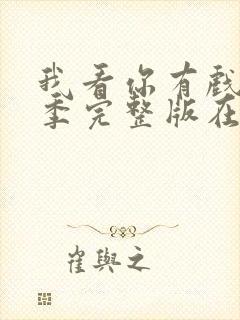 我看你有戏
季完整版在
崔與之